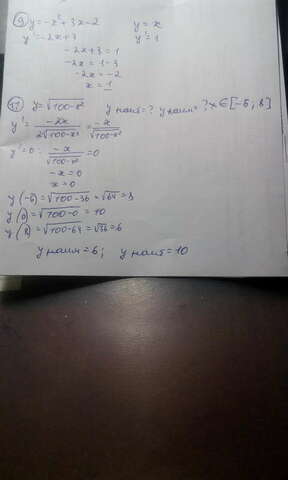 9) y=-x²+3x-2 y=x
y'=-2x+3 y'=1
-2x+3=1
-2x=1-3
-2x=-2
x=1
11) y=√100-x² y наиб=? y наим=? x∈[-6; 8]
y'=-2x/2√100-x²=-x/√100-x²
y'=0: -x/√100-x²=0
-x=0
x=0
y(-6)=√100-36=√64=8
y(0)=√100-0=10
y(8)=√100-64=√36=6
y наим=6; y наиб=10